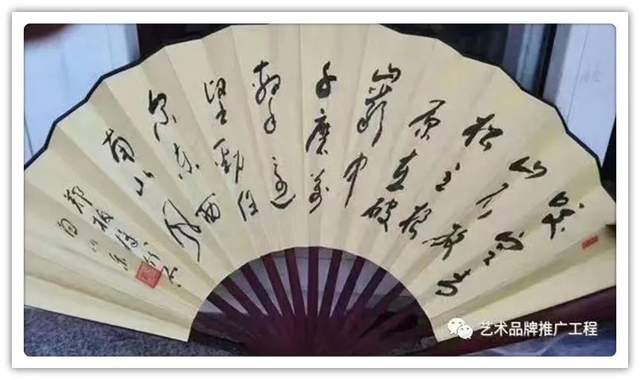 咬定青
山不放
松立根
原在破
岩中
千磨万
击还
坚劲任
尔东西
南北风
郑板桥竹石
艺术品牌推广工程